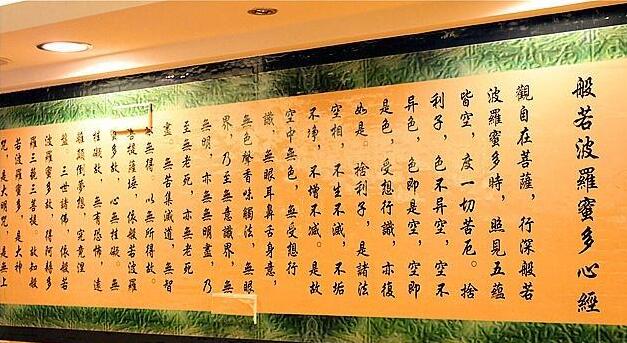 般若波羅蜜多心經
觀自在菩薩，行深般若
波羅蜜多時，照見五蘊
皆空，度一切苦厄。捨
利子，色不异空，空不
异色，色即是空，空即
是色，受想行識，亦復
如是。捨利子，是諸法
空相，不生不滅，不垢
不净，不增不减。是故
空中無色，無受想行
識，無眼耳鼻舌身意，
無色聲香味觸法，無眼
界，乃至無意識界，無
無明，亦無無明盡，乃
至無老死，亦無老死
盡。無苦集滅道，無智
無得，以無所得故。
菩提薩埵，依般若波羅
多故，心無挂礙。無
挂礙故，無有恐怖，遠
離顛倒夢想，究竟涅
盤。三世諸佛，依般若
波羅蜜多故，得阿耨多
羅三藐三菩提。故知般
若波羅蜜多，是大神
咒，是大明咒，是無上